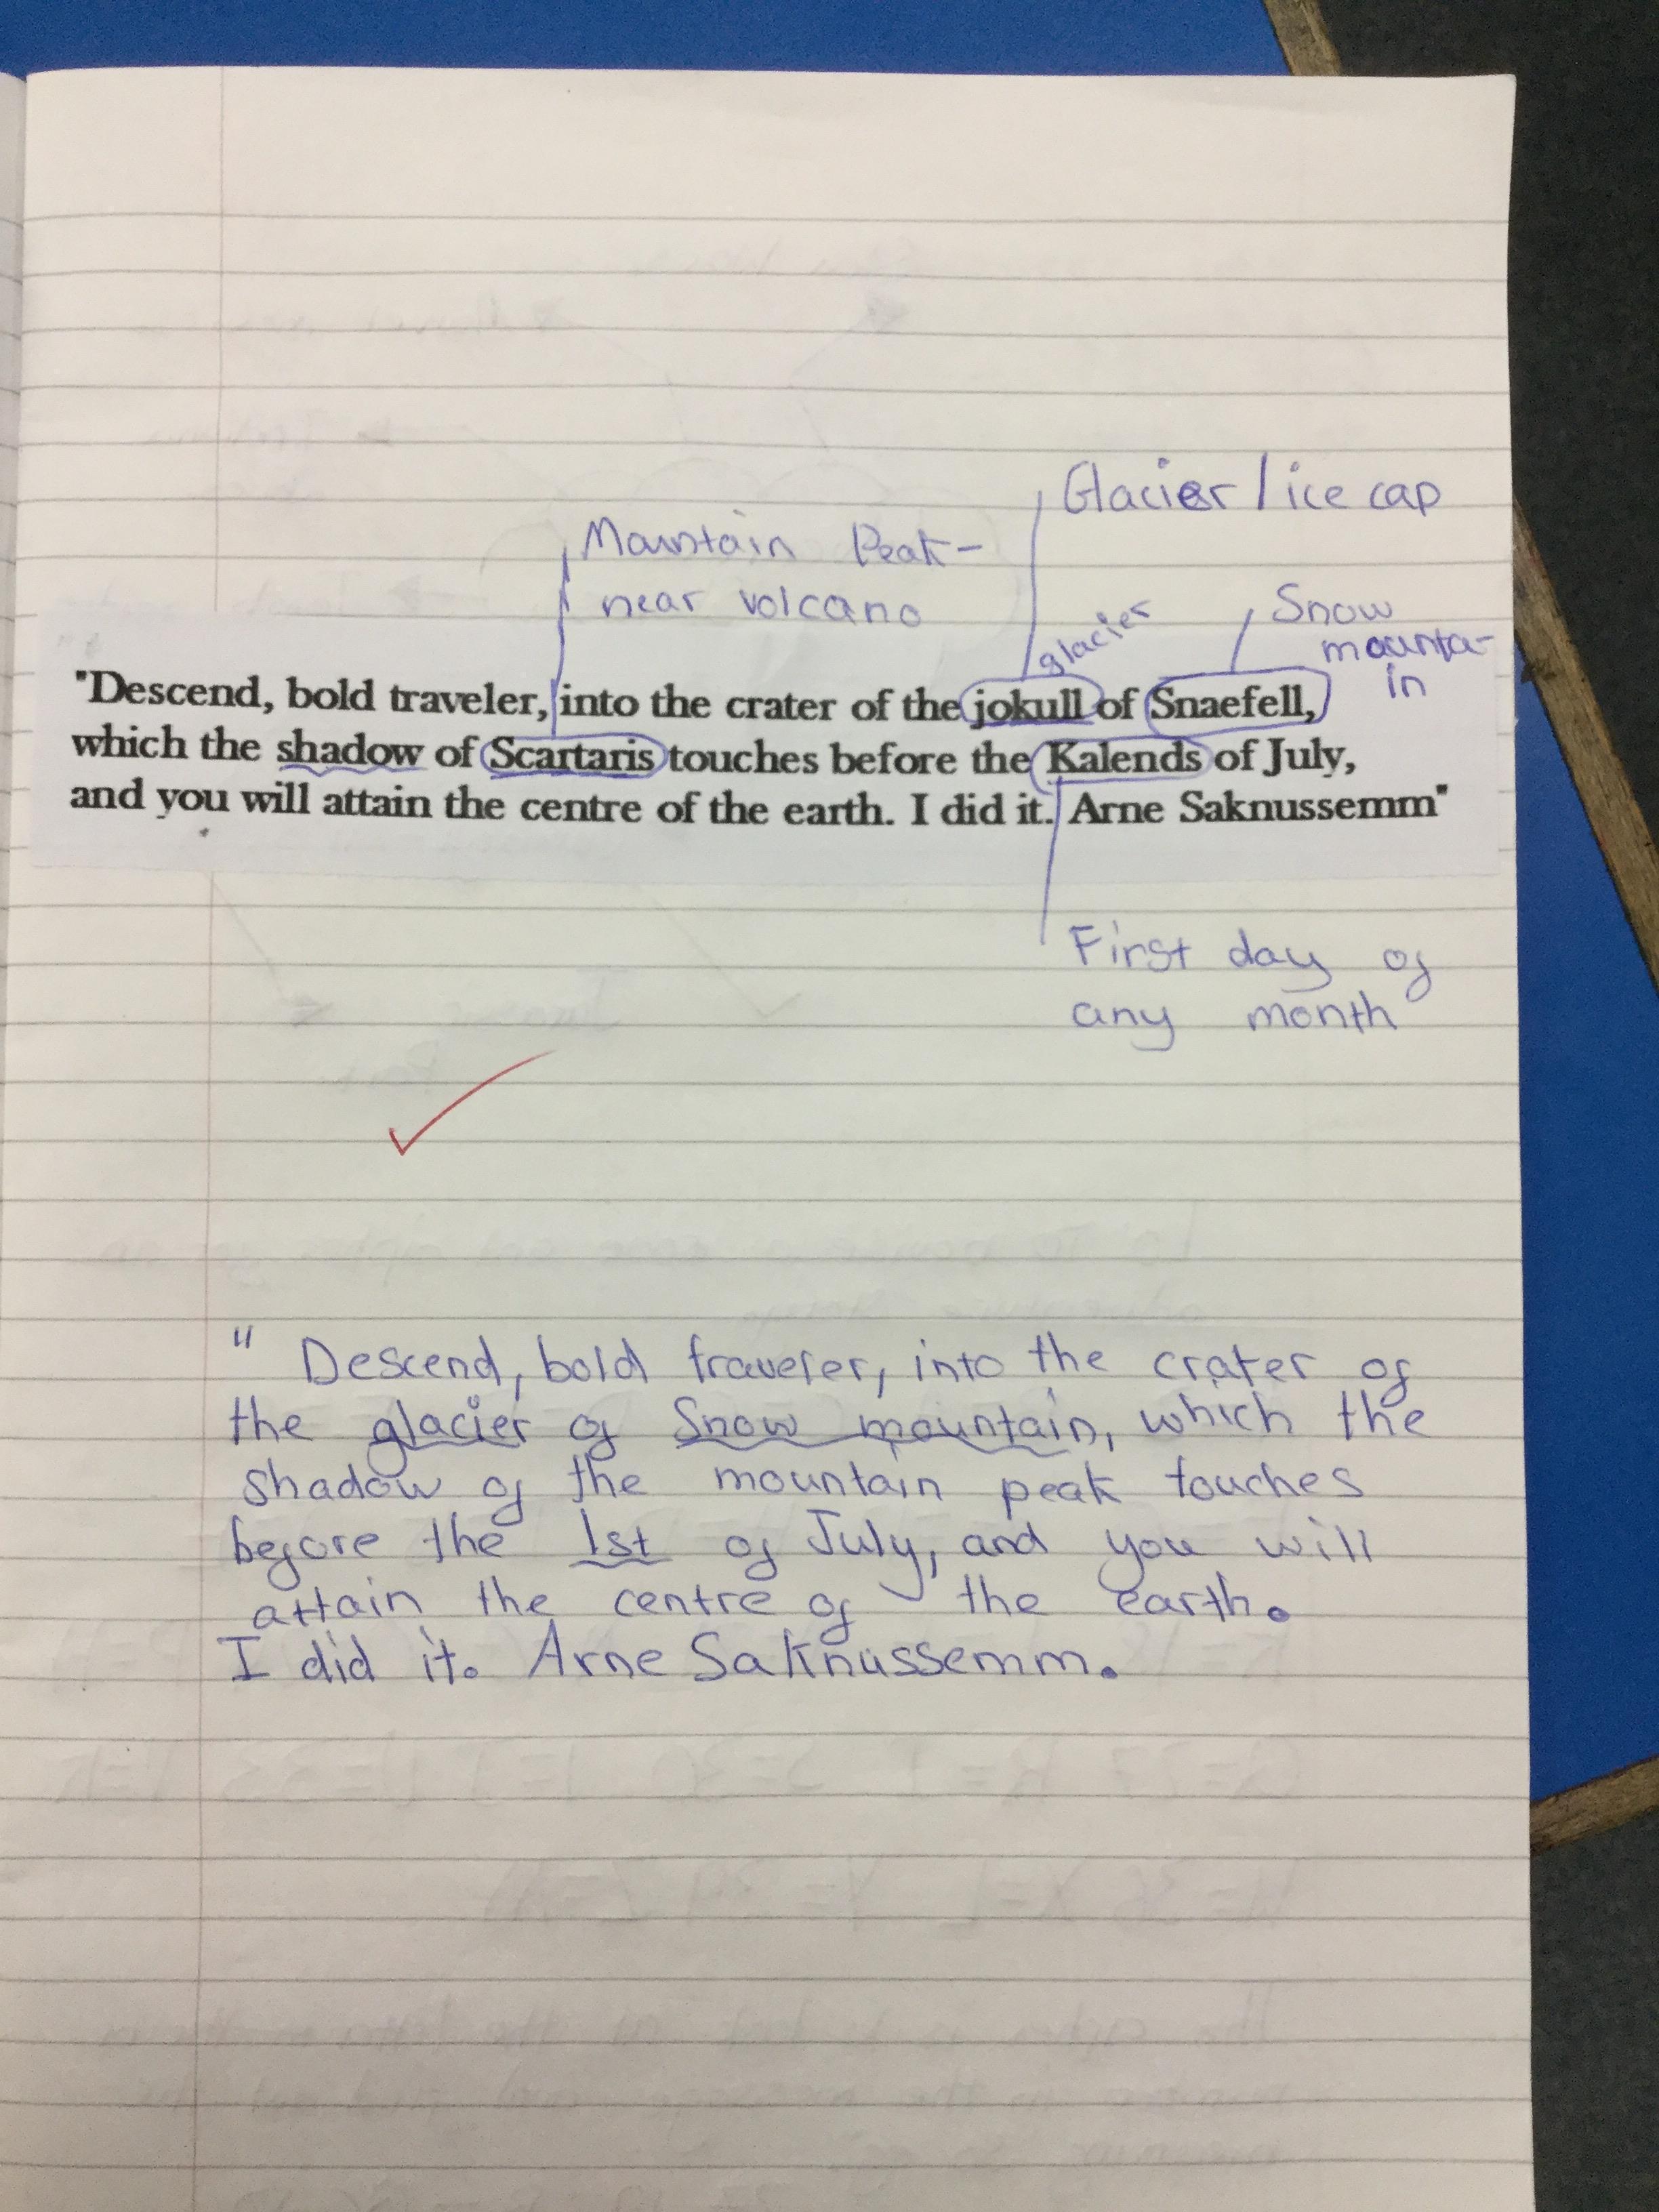 Glacier / ice cap
Mountain Peak -
near volcano
glacier
Snow
mounta-
in
"Descend, bold traveler, into the crater of the jokull of Snaefell,
which the shadow of Scartaris touches before the Kalends of July,
and you will attain the centre of the earth. I did it. Arne Saknussemm"
First day of
any month
" Descend, bold traveler, into the crater of
the glacier of Snow mountain, which the
shadow of the mountain peak touches
before the 1st of July, and you will
attain the centre of the earth.
I did it. Arne Saknussemm.